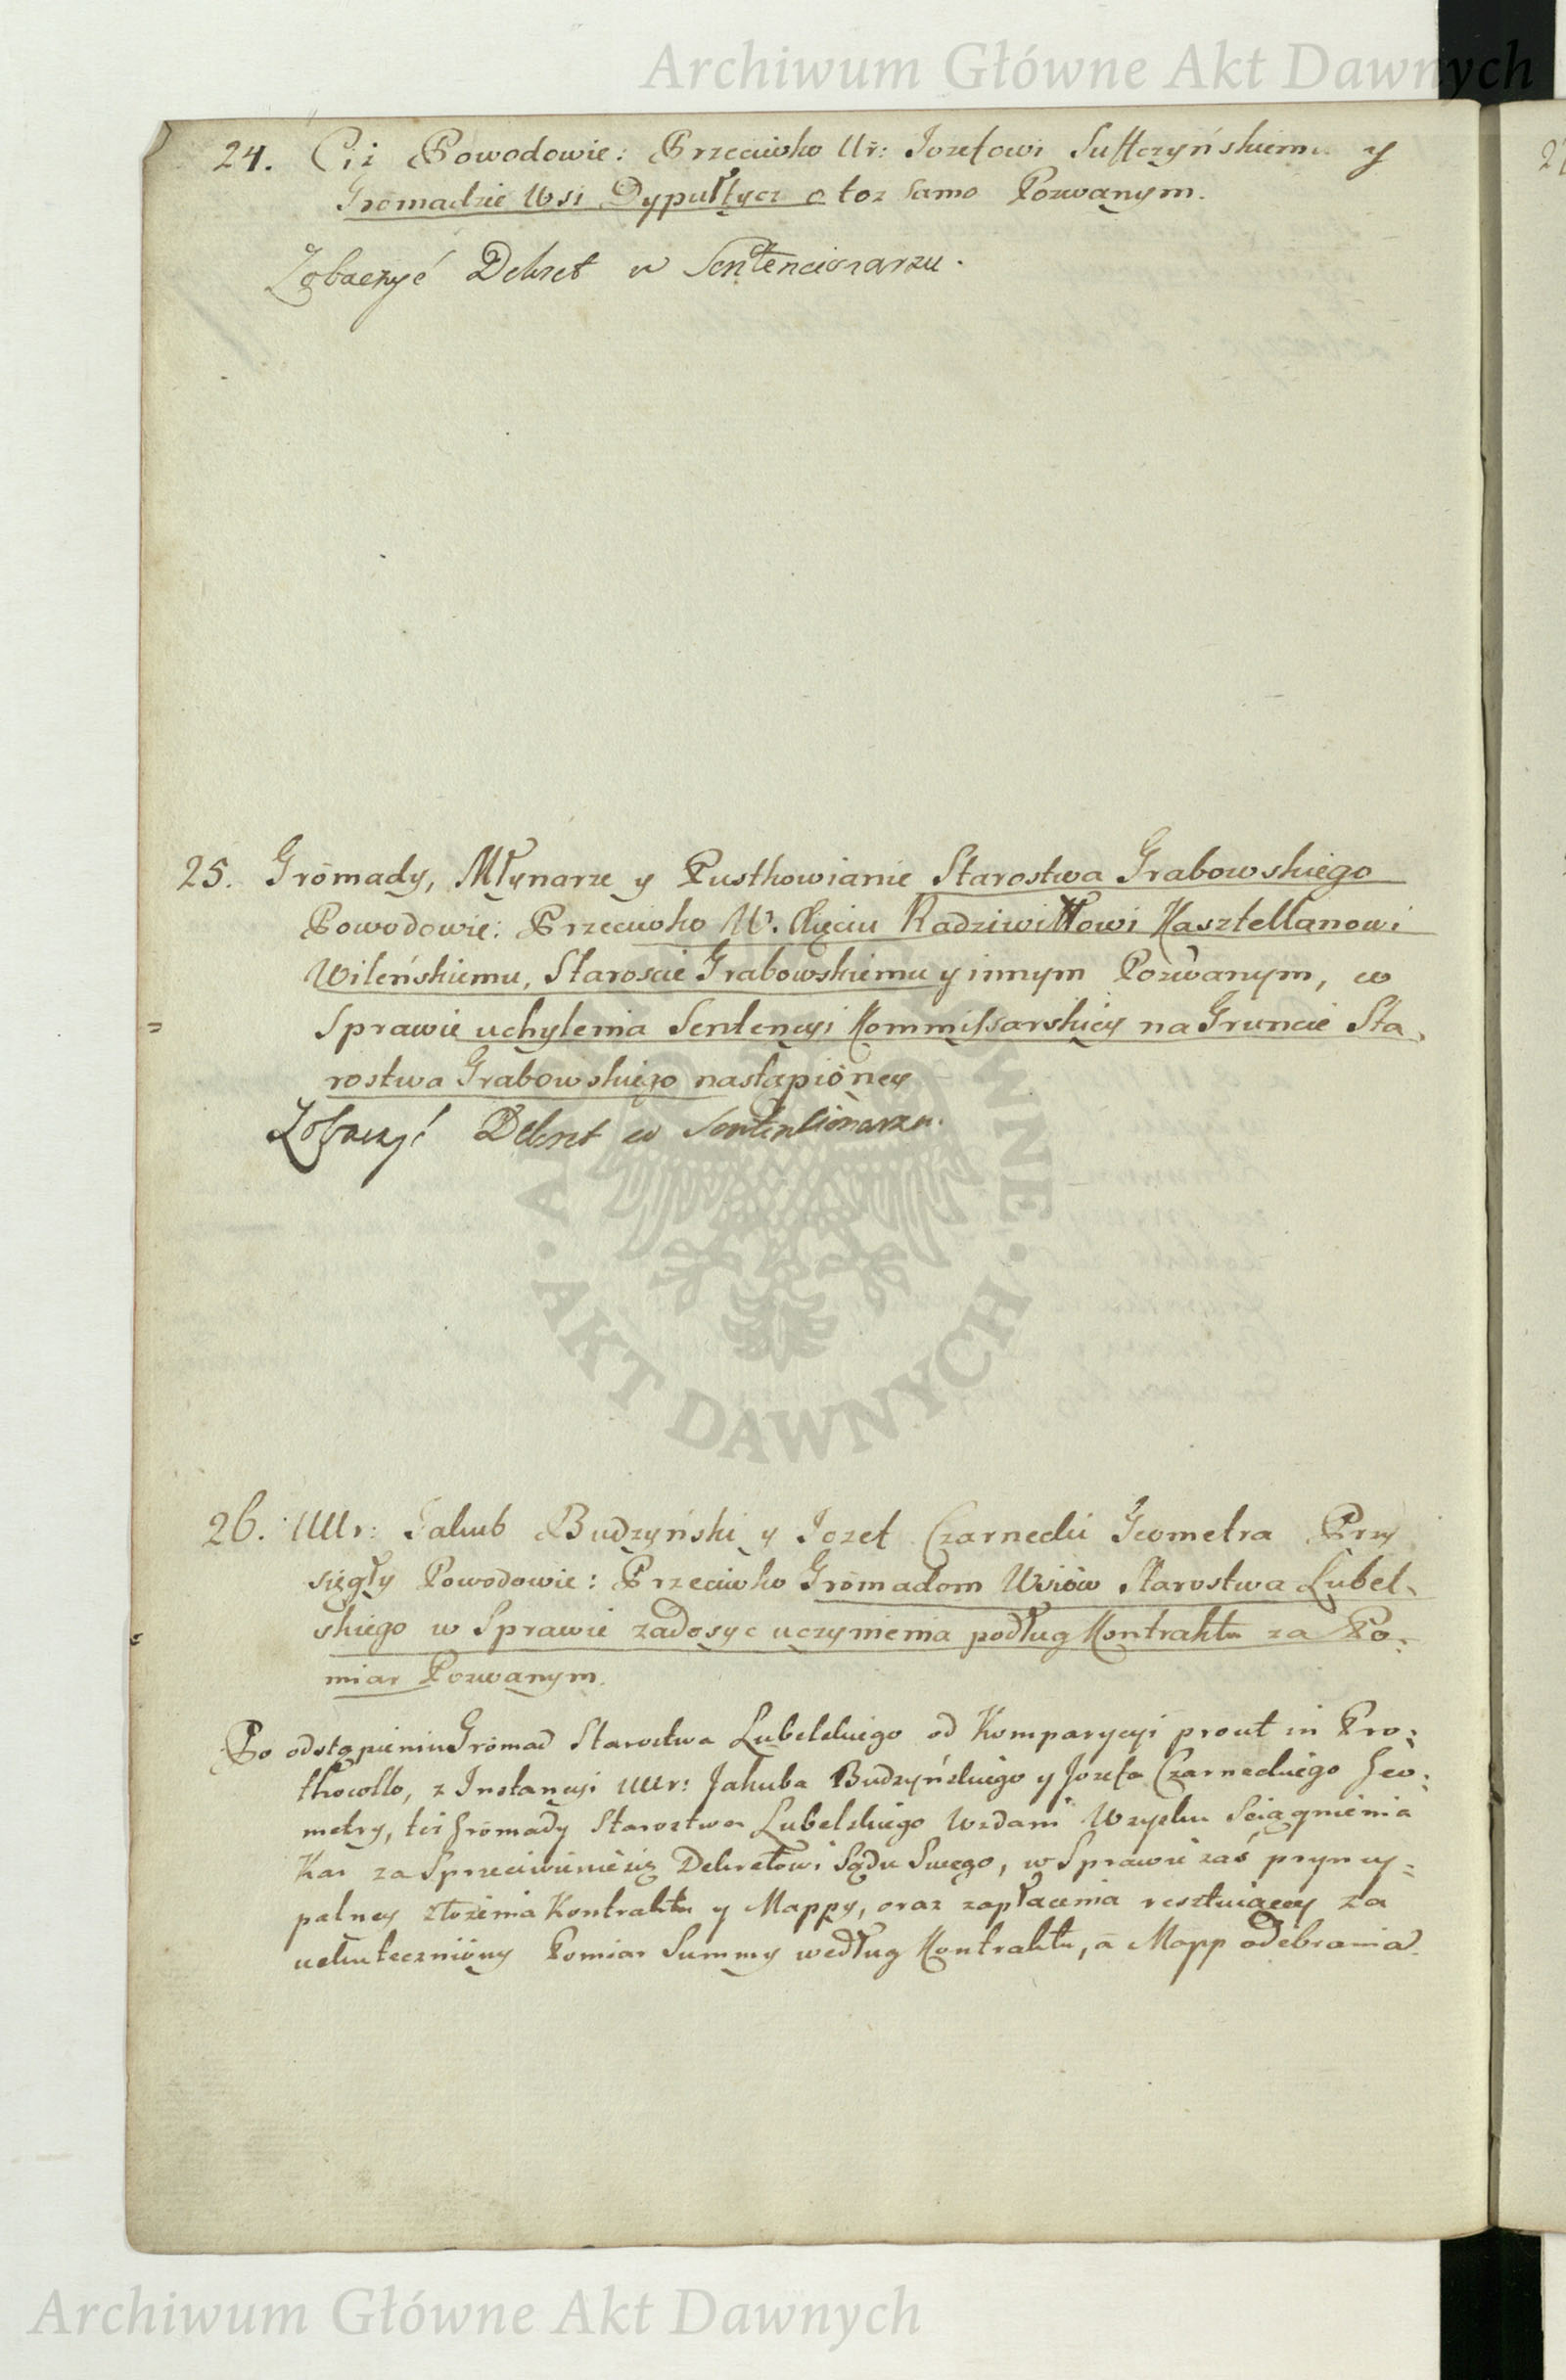 Archiwum Główne Akt Dawnych
24. Ciż Powodowie: Przeciwko Ur: Jozefowi Suffczyńskiemu y
Gromadzie Wsi Dypułtycz o toż samo Pozwanym.
Zobaczyć Dekret w Sentencionarzu.
25. Grōmady, Młynarze y Pustkowianie Starostwa Grabowskiego
Powodowie: Przeciwko W. Xięciu Radziwiłłowi Kasztellanowi
Wileńskiemu, Staroscie Grabowskiemu y innym Pozwanym, w
Sprawie uchylenia Sentencyi Kommissarskiey na Gruncie Sta-
rostwa Grabowskiego nastąpioney
Zobaczyć Dekret w Sentencionarzu.
26. UUr: Jakub Budzyński y Jozef Czarnecki Geometra Przy
sięgły Powodowie: Przeciwko Grōmadom Wsiōw Starostwa Lubel-
skiego w Sprawie zadosyc uczynienia podług Kontraktu za Po-
miar Pozwanym.
Po odstąpieniu Grōmad Starostwa Lubelskiego od Komparycyi prout in Pro-
thocollo, z Instancyi UUr: Jakuba Budzyńskiego y Jozefa Czarneckiego Geo-
metry, też Grōmady Starostwa Lubelskiego Wzdani Wzysku Sciągnienia
Kar za Sprzeciwienie się Dekretowi Sądu Swego, w Sprawie zaś pryncy-
palney złożenia Kontraktu y Mappy, oraz zapłacenia resztuiącey za
uskuteczniony Pomiar Summy według Kontraktu, a Mapp odebrania.
ARCHIWUM GŁÓWNE · AKT DAWNYCH ·
Archiwum Główne Akt Dawnych